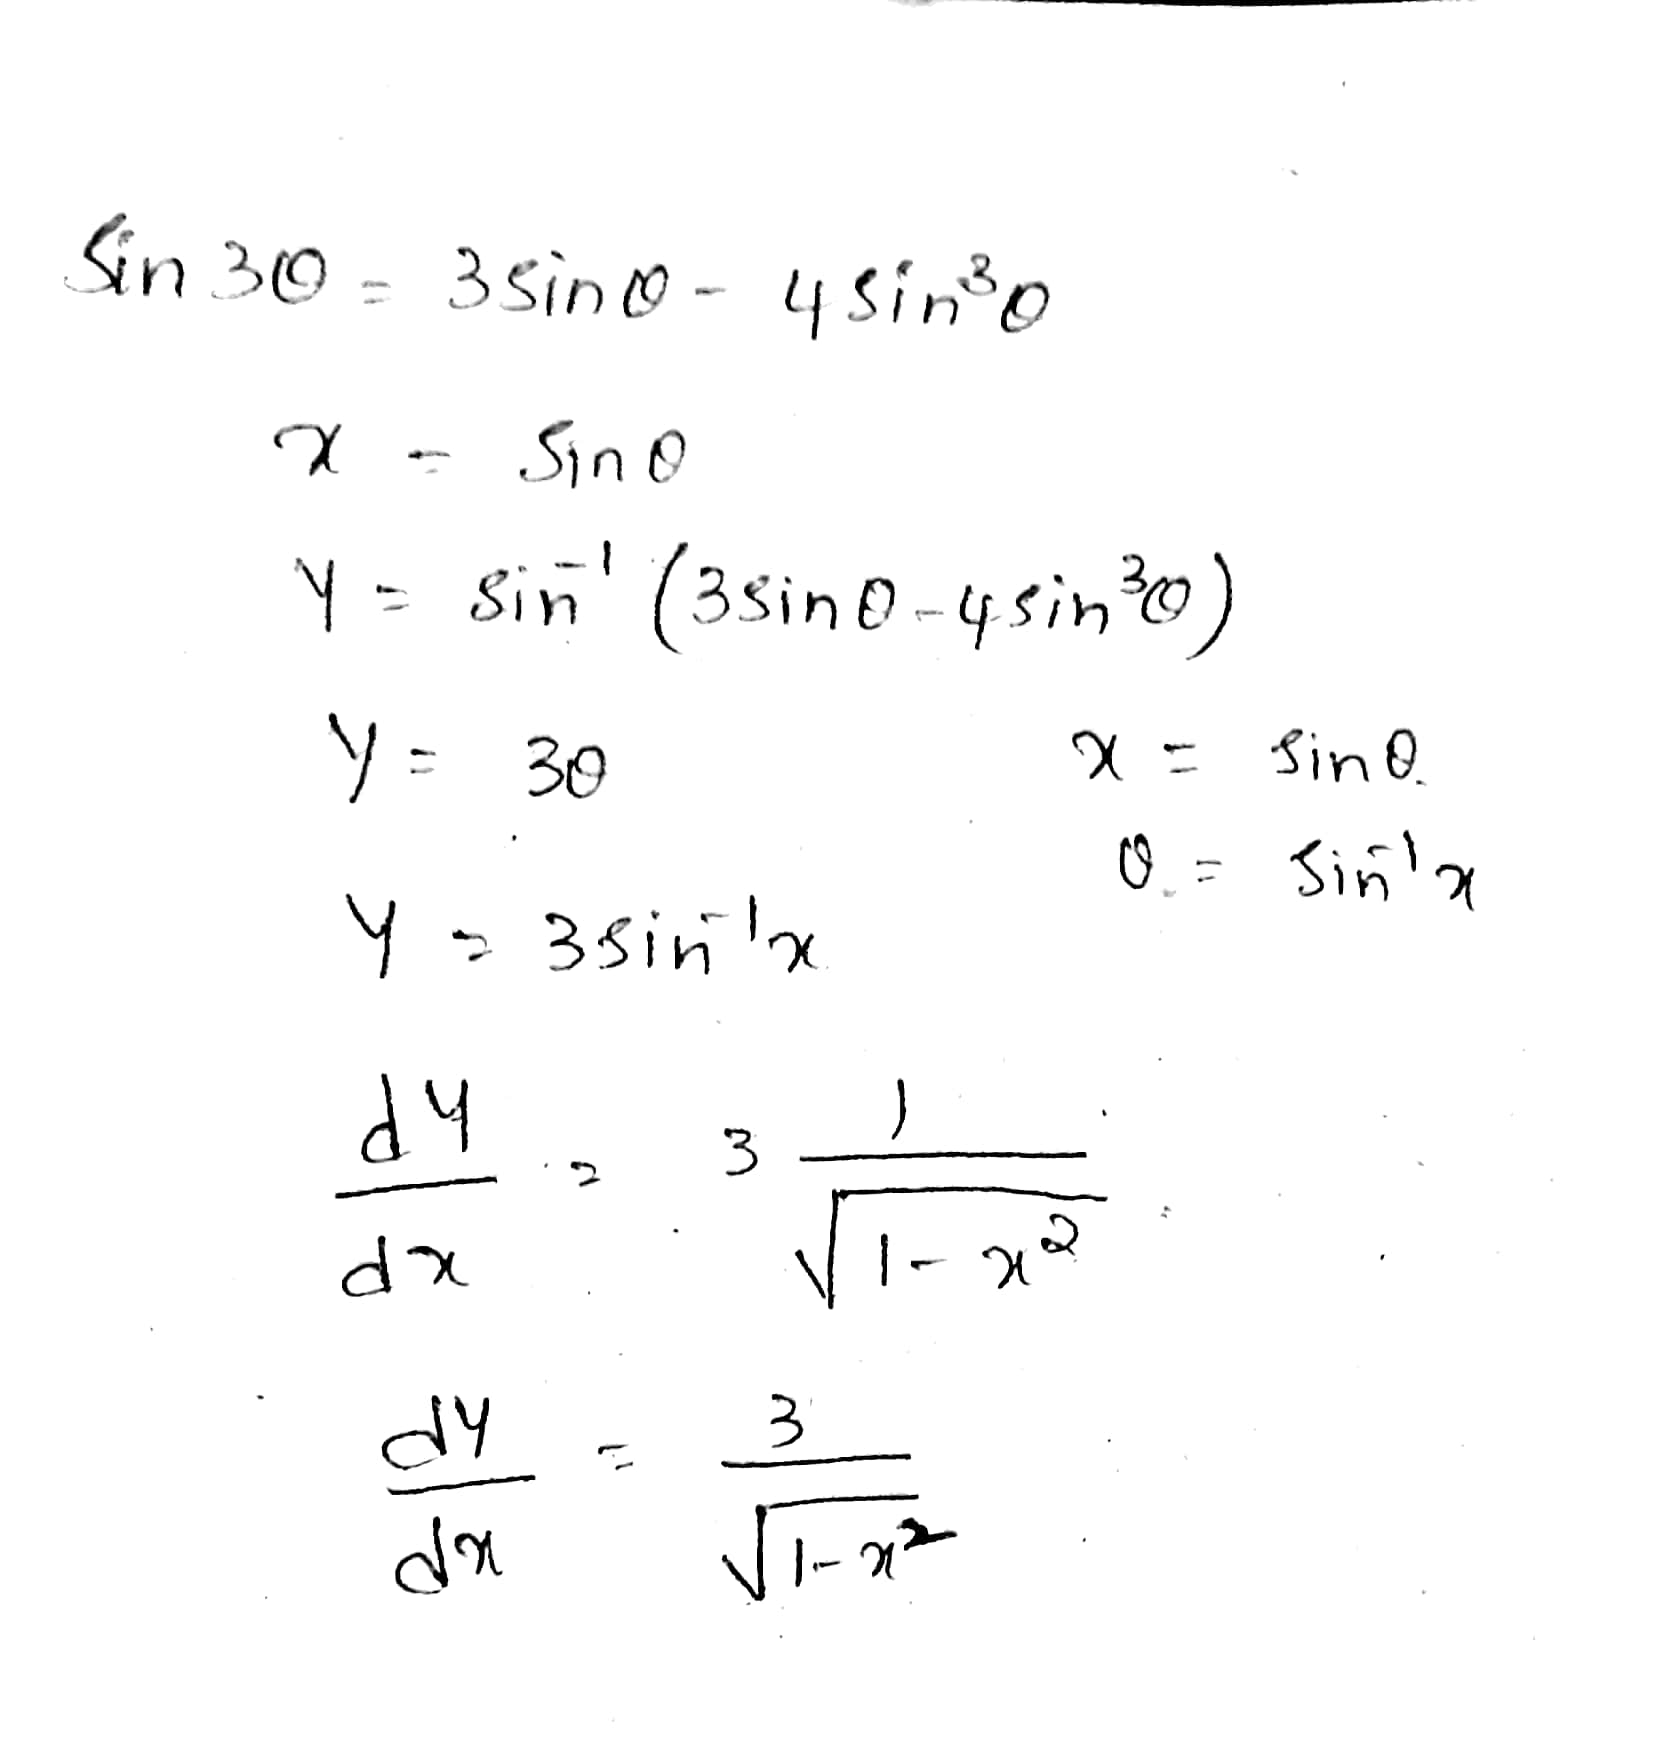 Sin 3θ = 3 sin θ - 4 sin³θ
x = Sin θ
y = sin⁻¹ (3 sin θ - 4 sin³θ)
y = 3θ x = sin θ
θ = sin⁻¹x
y = 3 sin⁻¹x
dy/dx = 3 1/√(1-x²)
dy/dx = 3/√(1-x²)